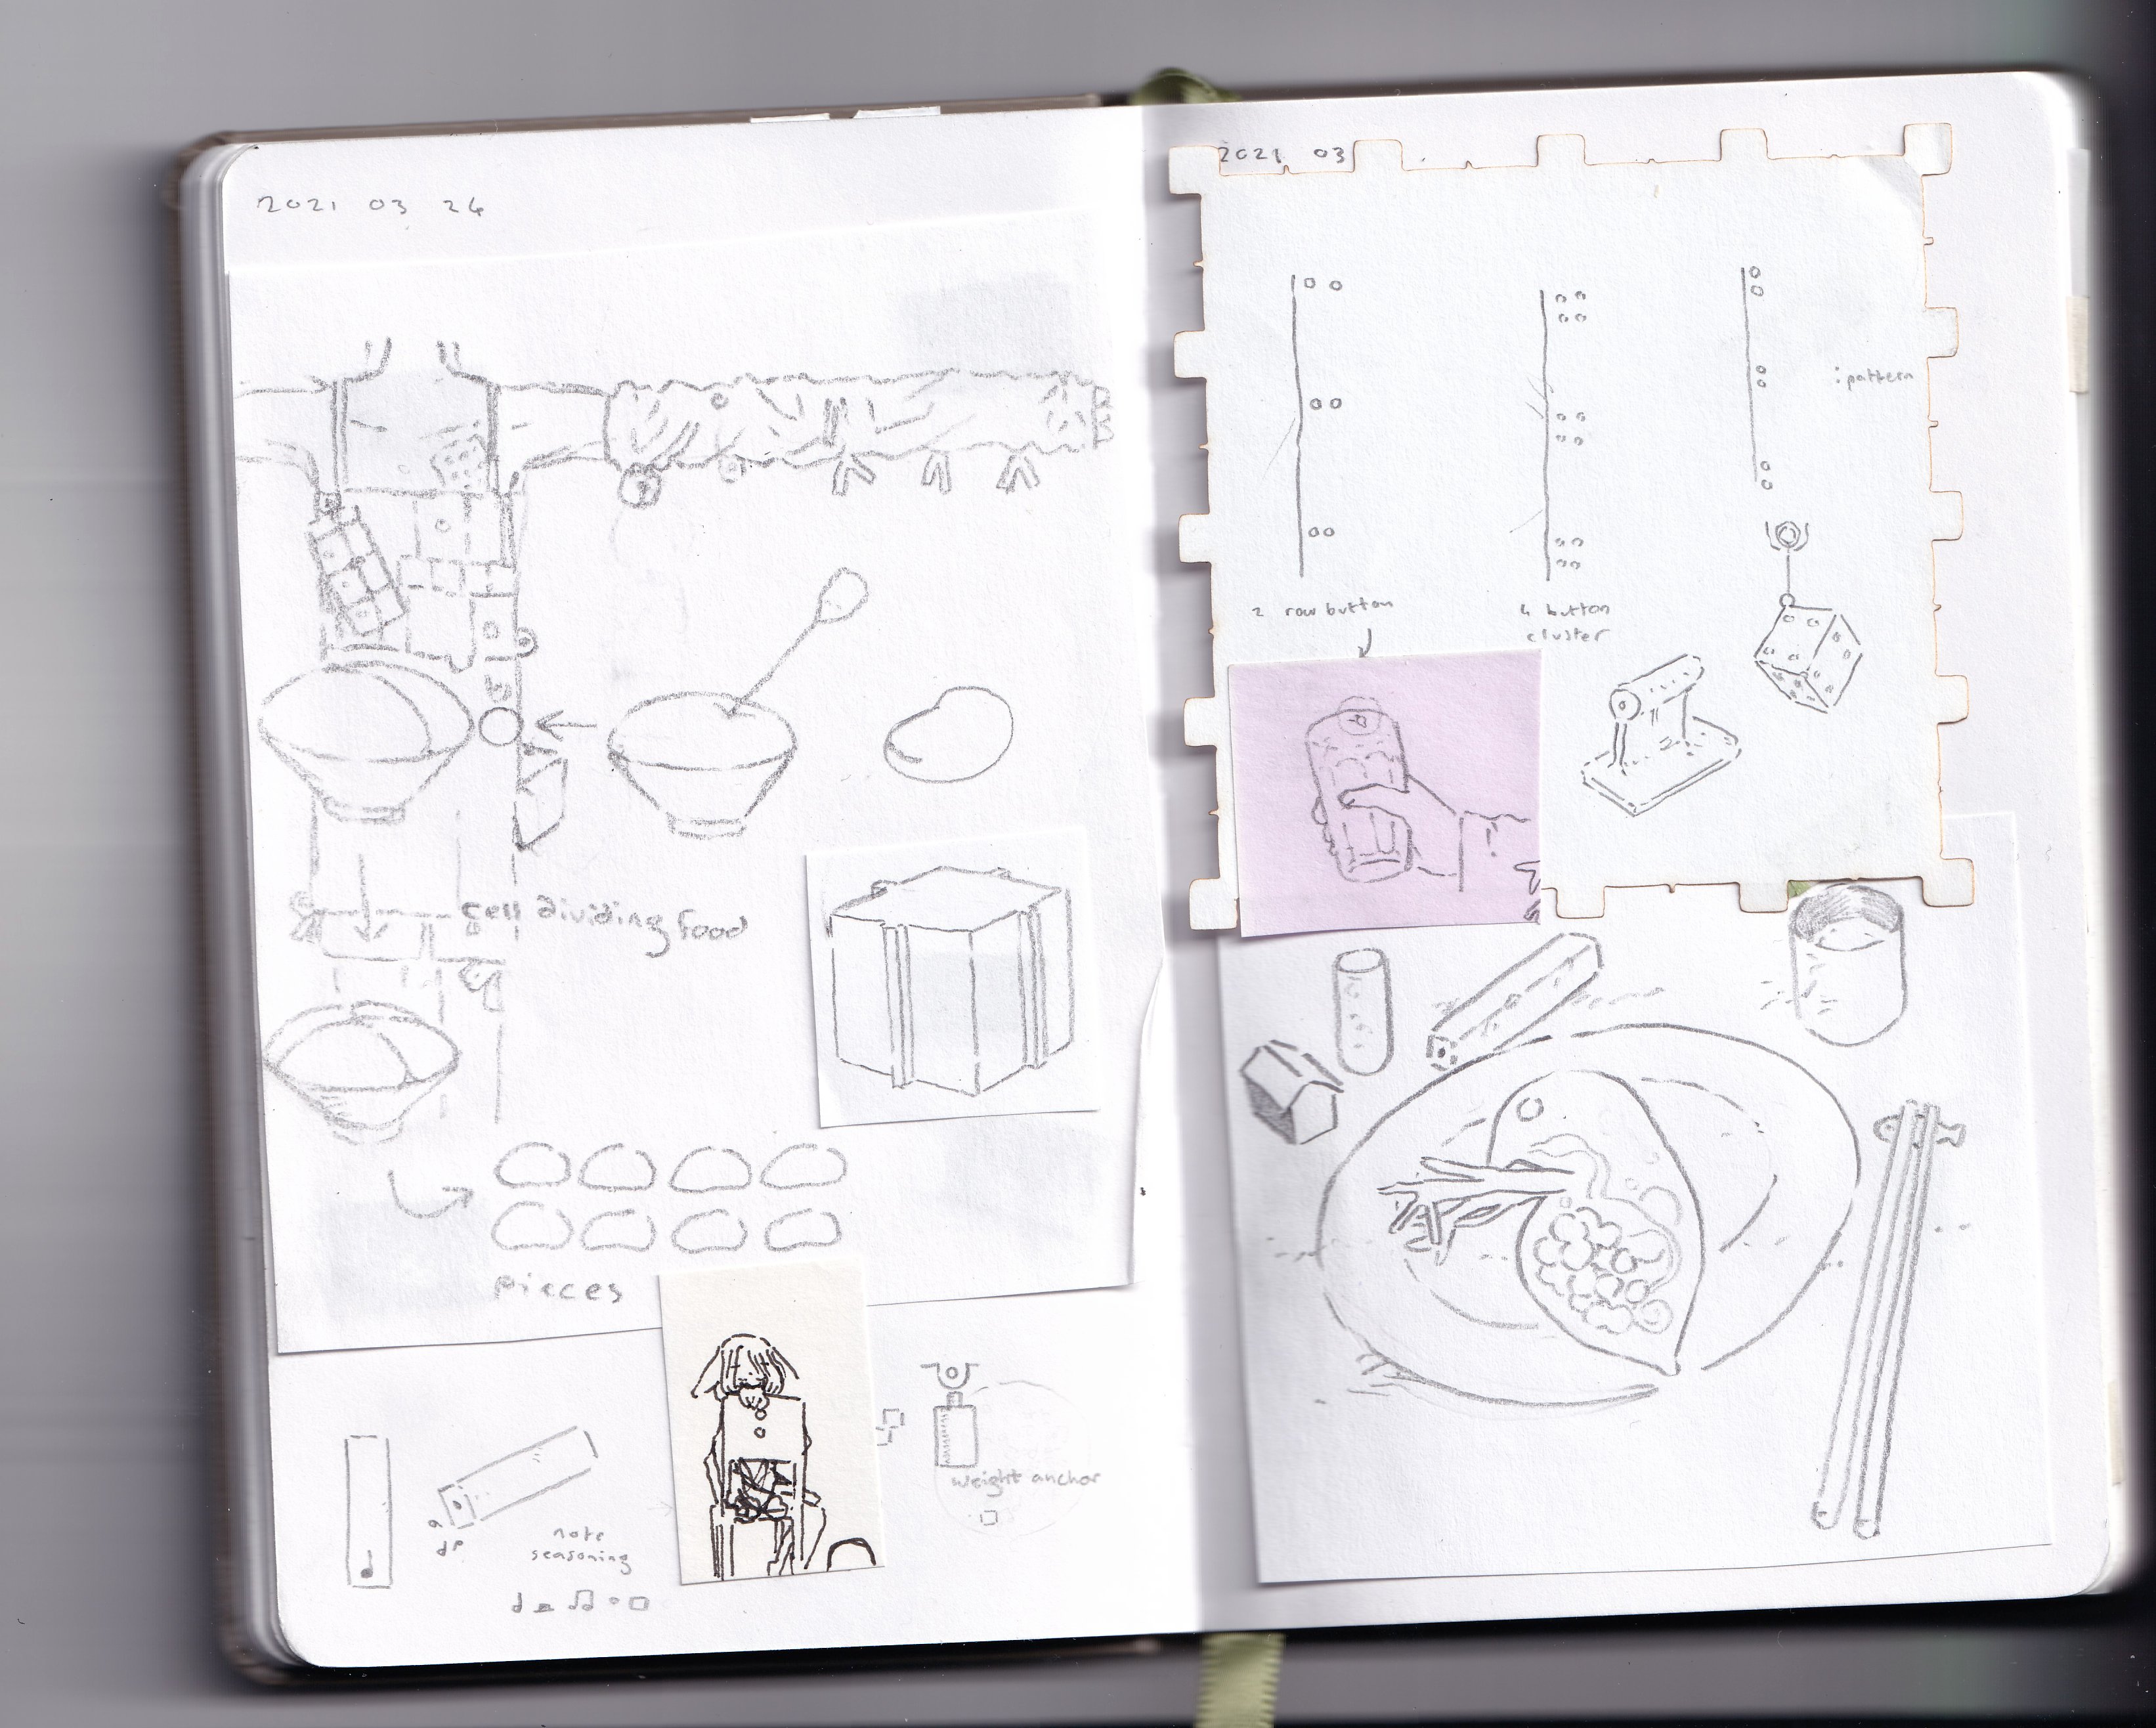 2021 03 24
cell dividing food
pieces
note
seasoning
weight anchor
2021 03
: pattern
2 row button
4 button
cluster